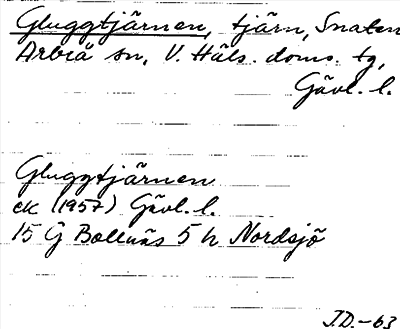 Gluggtjärnen, tjärn, Snaten
Arbrå sn, V. Häls. doms. tg,
Gävl. l.
Gluggtjärnen
ek (1957) Gävl. l.
15 G Bollnäs 5 h Nordsjö
J.D.-63